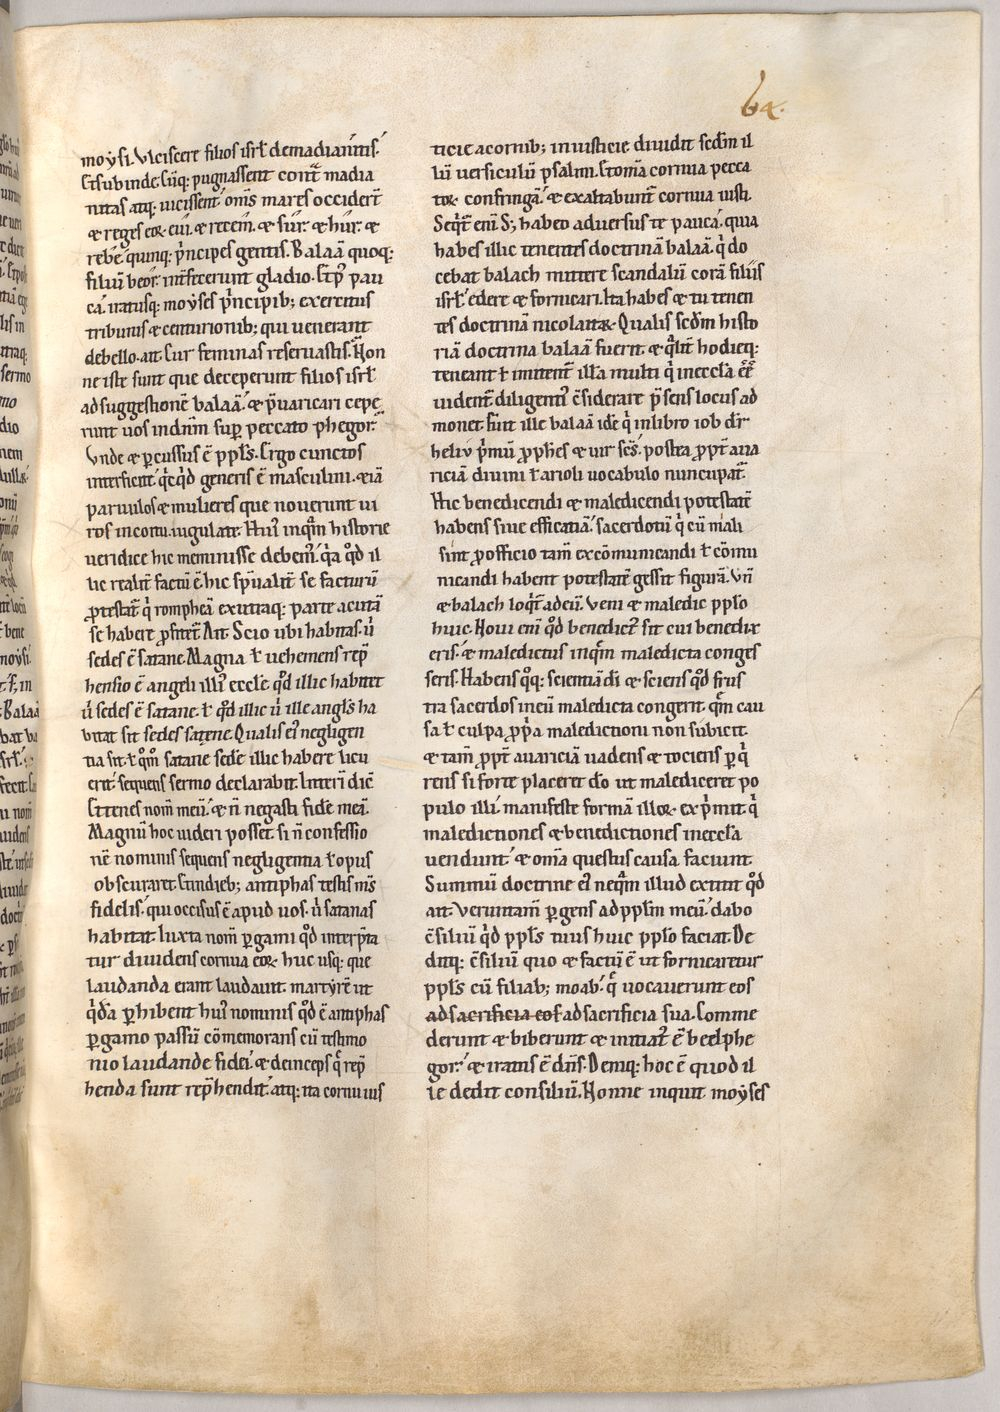 64.
moẏsi. Vlciscere filios isrł demadianitis.
Et subinde. Cūq; pugnassent cont̄ madia
nitas atq; uicissent. om̄s mares occiderт̄
& reges eoꝝ. eui. & recem. & sur. & hur. &
rebe. quinq; p̄ncipes gentis. Balaā quoq;
filiū beor. int̄fecerunt gladio. Et p⁹ pau
ca. iratusq; moẏses p̄ncipib; exercitus
tribunis & centurionib; qui uenerant
debello. ait. Cur feminas reseruastis. Non
ne iste sunt que deceperunt filios isrł
ad suggestionē balaā. & p̄uaricari cepe
runt uos in dn̄m sup̱ peccato phegor.
Vnde & ꝑcussus ē ppłs. Ergo cunctos
interficite q̄cq̄d generis ē masculini. & iā
paruulos & mulieres que nouerunt ui
ros in coitu. iugulate. Hui⁹ inq̄m historie
ueridice hic meminisse debem⁹. q̄a qd̄ il
lic realit̄ factū ē hic sp̄ualit̄ se facturū
ꝓtestat̄ q̄ romphea ex utraq; parte acutā
se habere ꝓfitet̄. Ait. Scio ubi habitas. ū
sedes ē satane. Magna ł uehemens rep̄
hensio ē angeli illi⁹ eccłe qd̄ illic habitet
ū sedes ē satane. ł qd̄ illic ū ille angłs ha
bitat sit sedes satane. Qualis ei⁹ negligen
tia sit. ł qm̄ satane sedē illic habere licu
erit. sequens sermo declarabit. Interī dic̄
Et tenes nom̄ meū. & n̄ negasti fidē meā.
Magnū hoc uideri posset. si n̄ confessio
nē nominis sequens negligentia ł opus
obscuraret. Et in dieb; antiphas testis m̄s
fidelis. qui occisus ē apud uos. ū satanas
habitat. Iuxta nom̄ pergami qd̄ interp̄ta
tur diuidens cornua eoꝝ. huc usq; que
laudanda erant laudauit. martyrē ut
q̄da ꝑhibent hui⁹ nominis qd̄ ē antiphas
ꝑgamo passū cōmemorans cū testimo
nio laudande fidei. & deinceps q̄ rep̄
henda sunt rep̄hendit. atq; ita cornu ius
ticie a cornib; iniusticie diuidit scd̄m il
lū uersiculū psalmi. Et omia cornua pecca
toꝝ confringā. & exaltabunt̄ cornua iusti.
Seqt̄ eni. S; habeo aduersus te pauca. quia
habes illic tenentes doctrinā balaā. q̄ do
cebat balach mittere scandalū corā filiis
isrł. edere & fornicari. Ita habes & tu tenen
tes doctrinā nicolaitaꝝ. Qualis scd̄m histo
riā doctrina balaā fuerit & qłit̄ hodieq;
teneant ł imitent̄ iłła multi q̄ in eccła eē
uident̄ diligenti⁹ ɔ̄siderare p̄sens locus ad
monet. Fuit ille balaā idē q̄ in libro iob dr̄
heliv p̄mū ꝓphes & uir scs̄. postea ꝓpt̄ aua
riciā diuini ł arioli uocabulo nuncupat̄.
Hic benedicendi & maledicendi potestatē
habens siue efficatiā. sacerdotū q̄ cū mali
sint ꝓ officio tam̄ excōmunicandi ł cōmu
nicandi habent potestatē gessit figurā. Vn̄
& balach loqt̄ ad eū. Veni & maledic ppło
huic. Noui eni qd̄ benedict⁹ sit cui benedix
eris. & maledictus inq̄m maledicta conges
seris. Habens qq; scientiā di & sciens qd̄ frus
tra sacerdos in eū maledicta congerit. quē cau
sa ł culpa ꝓpa maledictioni non subicit.
& tam̄ ꝓpt̄ auariciā uadens & tociens ꝑq̄
rens si forte placeret do ut malediceret po
pulo illi. manifeste formā illoꝝ exp̄mit q̄
maledictiones & benedictiones in eccła
uendunt. & omīa questus causa faciunt.
Summū doctrine ei⁹ neq̄m illud extitit qd̄
ait. Veruntam̄ ꝑgens ad ppłm meū. dabo
ɔ̄siliū q̄d ppłs tuus huic ppło faciat. De
ditq; ɔ̄siliū quo & factū ē ut fornicaretur
ppłs cū filiab; moab. q̄ uocauerunt eos
ad sacrificia eoꝝ ad sacrificia sua. Comme
derunt & biberunt & initiat⁹ ē beelphe
gor. & iratus ē dn̄s. Demq; hoc ē quod il
le dedit consiliū. Nonne inquit moẏses